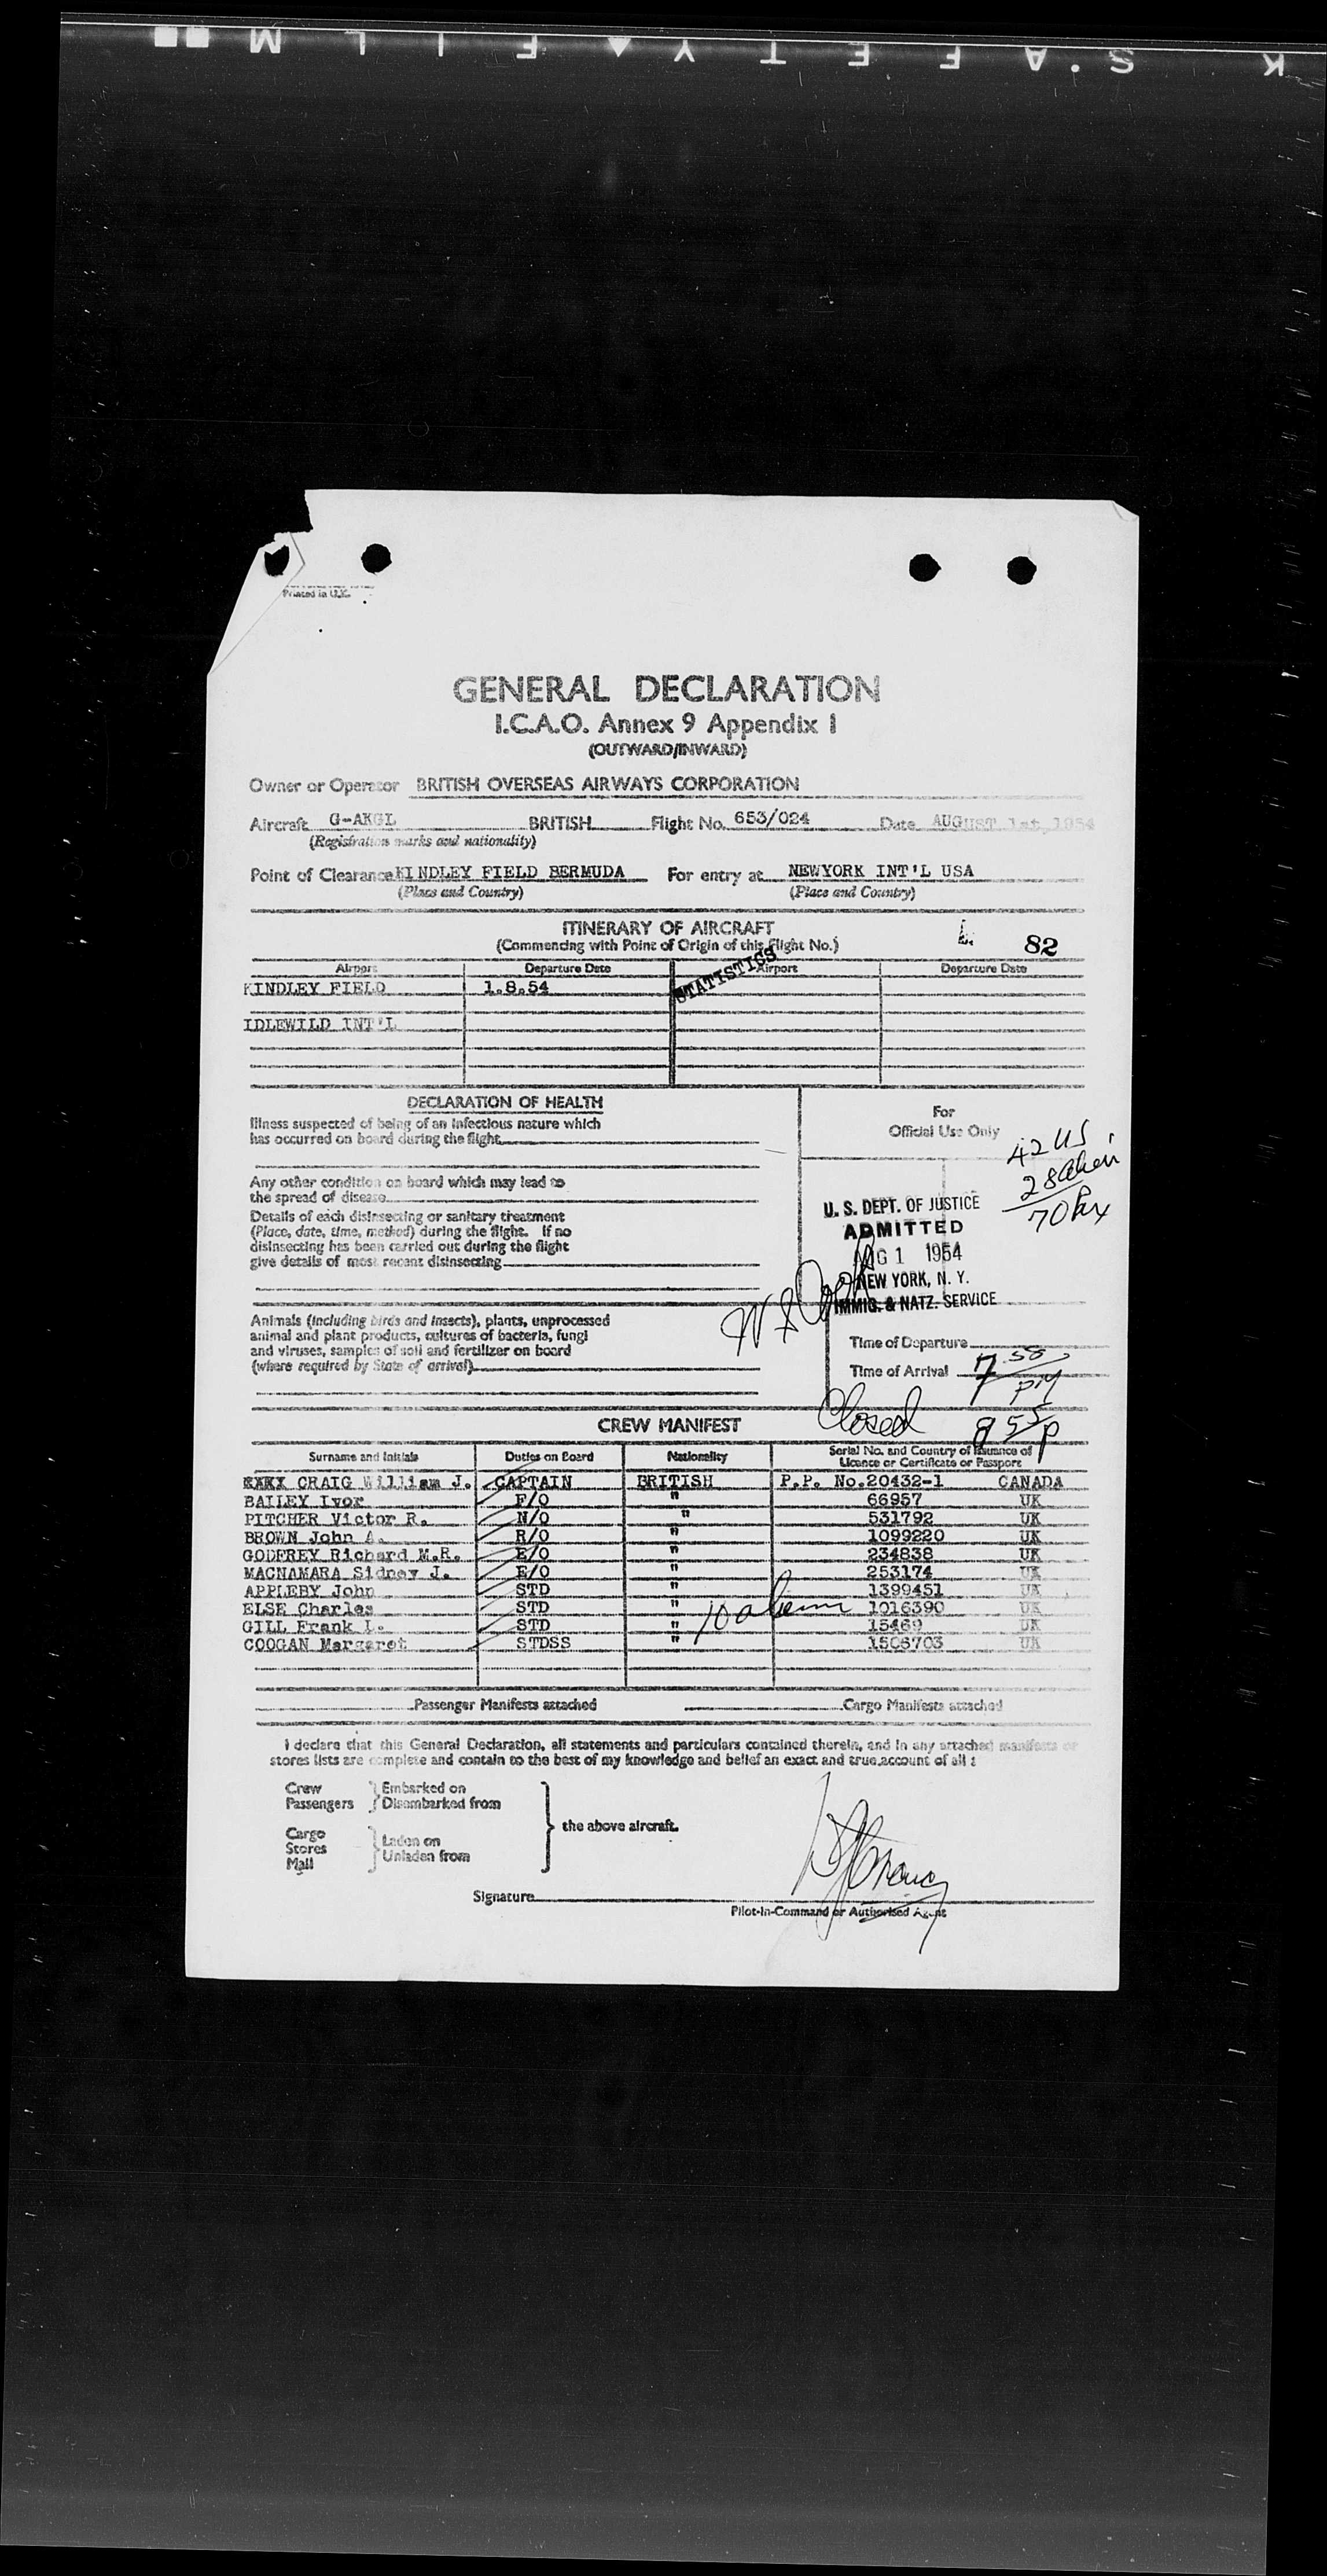 K S.A F E T Y ▲ F I L M ■■
Printed in U.K.
GENERAL DECLARATION
I.C.A.O. Annex 9 Appendix I
(OUTWARD/INWARD)
Owner or Operator BRITISH OVERSEAS AIRWAYS CORPORATION
Aircraft G-AKGL BRITISH Flight No. 653/024 Date AUGUST 1st, 1954
(Registration marks and nationality)
Point of Clearance KINDLEY FIELD BERMUDA For entry at NEWYORK INT'L USA
(Place and Country) (Place and Country)
ITINERARY OF AIRCRAFT
(Commencing with Point of Origin of this Flight No.) 82
STATISTICS
Airport Departure Date Airport Departure Date
KINDLEY FIELD 1.8.54
IDLEWILD INT'L
DECLARATION OF HEALTH
Illness suspected of being of an infectious nature which
has occurred on board during the flight
Any other condition on board which may lead to
the spread of disease
Details of each disinsecting or sanitary treatment
(Place, date, time, method) during the flight. If no
disinsecting has been carried out during the flight
give details of most recent disinsecting
Animals (including birds and insects), plants, unprocessed
animal and plant products, cultures of bacteria, fungi
and viruses, samples of soil and fertilizer on board
(where required by State of arrival)
For
Official Use Only
42 US
28 Alien
70 Px
U. S. DEPT. OF JUSTICE
ADMITTED
AUG 1 1954
NEW YORK, N. Y.
IMMIG. & NATZ. SERVICE
Time of Departure
Time of Arrival 7 50 PM
Closed 8 55 P
CREW MANIFEST
Surname and Initials Duties on Board Nationality Serial No. and Country of Issuance of
Licence or Certificate or Passport
CRAIG William J. CAPTAIN BRITISH P.P. No.20432-1 CANADA
BAILEY Ivor F/O " 66957 UK
PITCHER Victor R. N/O " 531792 UK
BROWN John A. R/O " 1099220 UK
GODFREY Richard M.R. E/O " 234838 UK
MACNAMARA Sidney J. E/O " 253174 UK
APPLEBY John STD " 1399451 UK
ELSE Charles STD " 1016390 UK
GILL Frank L. STD " 15469 UK
COOGAN Margaret STDSS " 1506703 UK
10 aliens
Passenger Manifests attached Cargo Manifests attached
I declare that this General Declaration, all statements and particulars contained therein, and in any attached manifests or
stores lists are complete and contain to the best of my knowledge and belief an exact and true account of all :
Crew Embarked on
Passengers Disembarked from
the above aircraft.
Cargo Laden on
Stores Unladen from
Mail
Signature
Pilot-in-Command or Authorised Agent